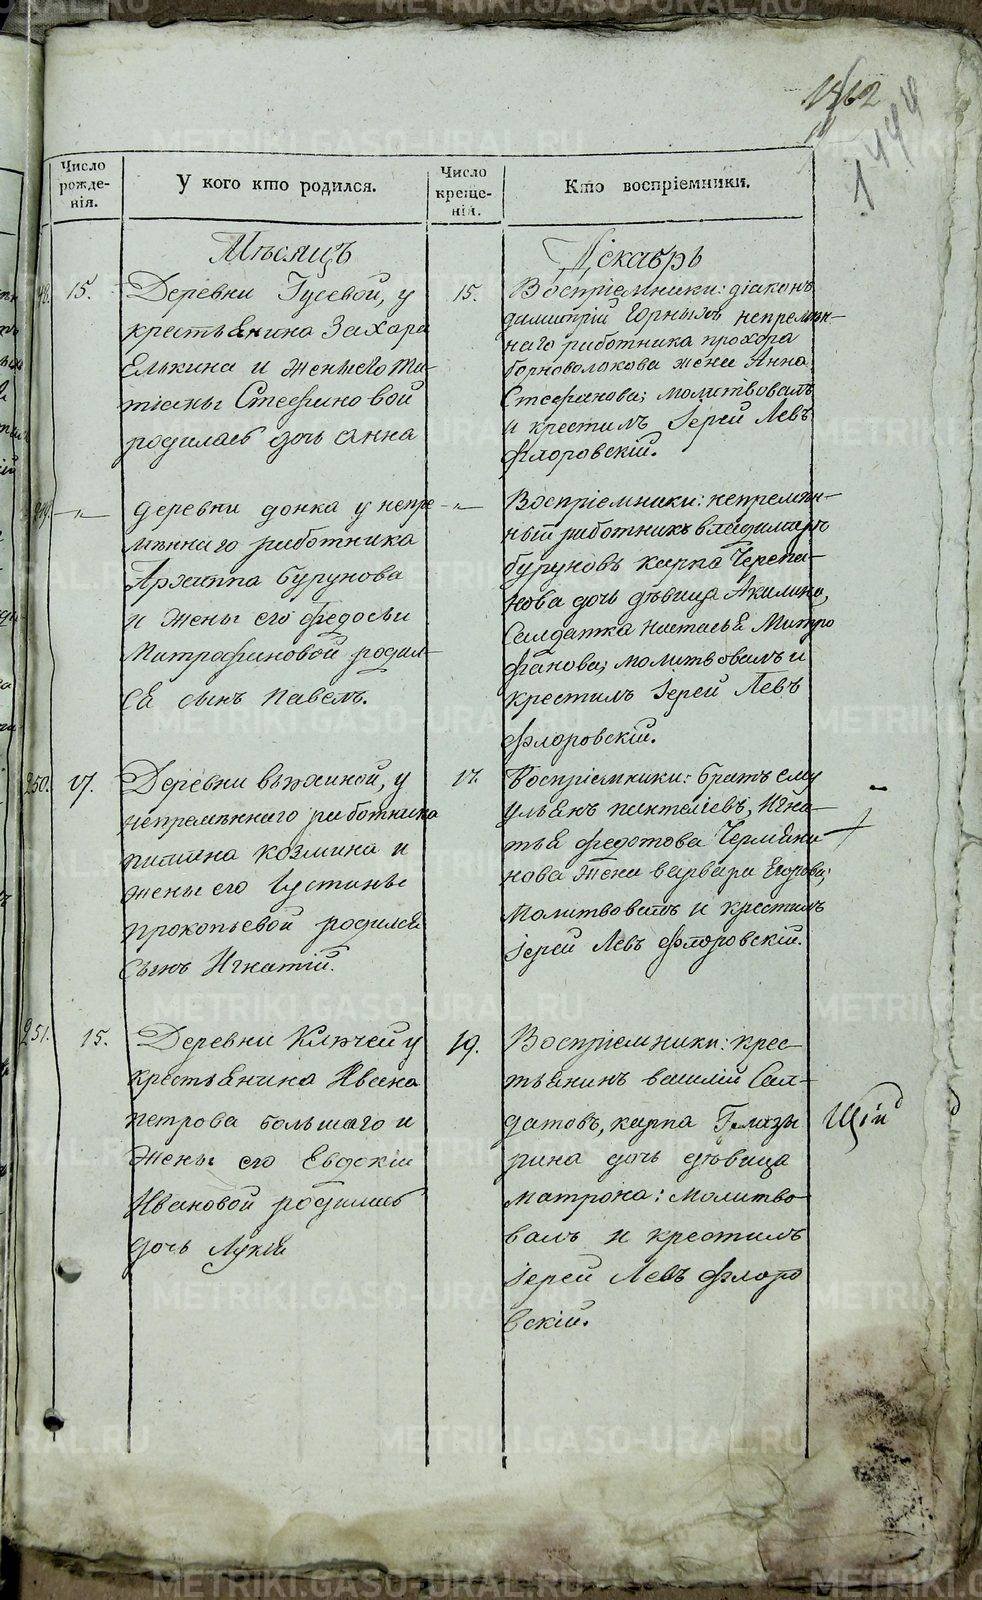 1444
Число рожде- нія.
У кого кто родился.
Число креще- нія.
Кто воспріемники.
Мѣсяцъ
Декабрь
15.
Деревни Гусевой, у
крестьянина Захара
Елькина и жены его Та-
тіаны Стефановой
родилась дочь Анна
15.
Воспріемники: діаконъ
димитрій Горныхъ непремѣн-
наго работника прохора
борноволокова жена Анна
Стефанова; молитвовалъ
и крестилъ Іерей Левъ
Флоровскій.
249. -"-
деревни донка у непре-
мѣннаго работника
Архиппа бурунова
и жены его федосьи
Митрофановой родил-
ся сынъ павелъ.
-"-
Воспріемники: непремѣн-
ный работникъ владимиръ
буруновъ карпа Черепа-
нова дочь дѣвица Акилина,
Салдатка настасья Митро
фанова; молитвовалъ и
крестилъ Іерей Левъ
Флоровскій.
250. 17.
Деревни вяжиной, у
непремѣннаго работника
козмина и
жены его Іустины
прокопьевой родился
сынъ Игнатій.
17.
Воспріемники: братъ ему
ульянъ пантелѣевъ, Игна-
тья федотова Черемяни-
нова жена варвара Егорова;
молитвовалъ и крестилъ
Іерей Левъ Флоровскій.
251. 15.
Деревни Ключей у
крестьянина Ивана
петрова большаго и
жены его Евдокіи
Ивановой родилась
дочь Лукія
19.
Воспріемники: крес-
тьянинъ василій Сал-
датовъ, карпа Глазы
рина дочь дѣвица
матрона: молитво
валъ и крестилъ
Іерей Левъ Флоро
вскій.
METRIKI.GASO-URAL.RU